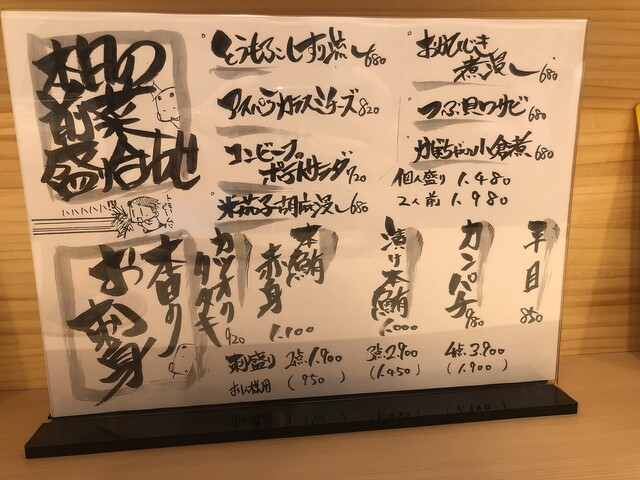 本日の
前菜
盛り合わせ
とうもろこしすり流し 680
アイスパラ
コンビーフ
ポテトサラダ 720
米茄子胡麻浸し 680
おかひじき
煮浸し 680
つぶ貝ワサビ 680
かぼちゃの小倉煮 680
個人盛り 1.480
2人前 1.980
本日の
お刺身
カツオの
タタキ 920
本鮪
赤身
1.100
漬け本鮪
1.000
カンパチ
980
平目
850
刺盛り 2点 1.900 3点 2.900 4点 3.900
お一人様用 (950) (1.450) (1.900)